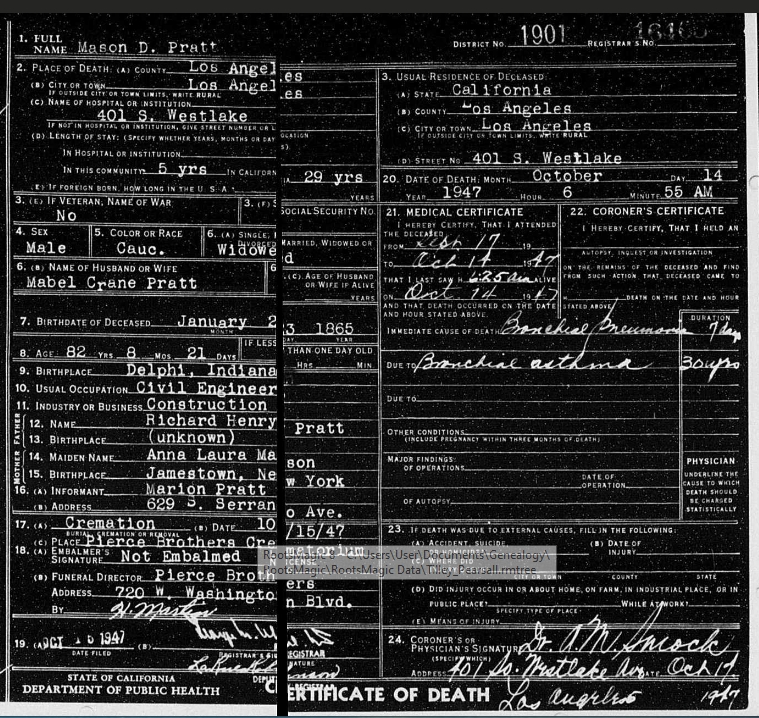 DISTRICT NO. 1901 REGISTRAR'S NO.
1. FULL NAME Mason D. Pratt
2. PLACE OF DEATH: (A) COUNTY Los Angel es
(B) CITY OR TOWN Los Angel es
IF OUTSIDE CITY OR TOWN LIMITS, WRITE RURAL
(C) NAME OF HOSPITAL OR INSTITUTION
401 S. Westlake
IF NOT IN HOSPITAL OR INSTITUTION, GIVE STREET NUMBER OR L OCATION
(D) LENGTH OF STAY: (SPECIFY WHETHER YEARS, MONTHS OR DAY S)
IN HOSPITAL OR INSTITUTION
IN THIS COMMUNITY 5 yrs IN CALIFORN IA 29 yrs
YEARS
(E) IF FOREIGN BORN, HOW LONG IN THE U. S. A.
3. (E) IF VETERAN, NAME OF WAR
No
3. (F) S OCIAL SECURITY NO.
4. SEX
Male
5. COLOR OR RACE
Cauc.
6. (A) SINGLE, MARRIED, WIDOWED OR DIVORCED
Widowe d
6. (B) NAME OF HUSBAND OR WIFE
Mabel Crane Pratt
6 (C). AGE OF HUSBAND OR WIFE IF ALIVE
YEARS
7. BIRTHDATE OF DECEASED January 2 3 1865
MONTH DAY YEAR
8. AGE 82 YRS. 8 MOS. 21 DAYS
IF LESS THAN ONE DAY OLD
HRS. MIN
9. BIRTHPLACE Delphi, Indiana
10. USUAL OCCUPATION Civil Engineer
11. INDUSTRY OR BUSINESS Construction
FATHER
12. NAME Richard Henry Pratt
13. BIRTHPLACE (unknown)
MOTHER
14. MAIDEN NAME Anna Laura Ma son
15. BIRTHPLACE Jamestown, Ne w York
16. (A) INFORMANT Marion Pratt
(B) ADDRESS 629 S. Serran o Ave.
17. (A) Cremation (B) DATE 10 /15/47
BURIAL CREMATION OR REMOVAL
(C) PLACE Pierce Brothers Cre matorium
18. (A) EMBALMER'S SIGNATURE Not Embalmed LICENSE
(B) FUNERAL DIRECTOR Pierce Broth ers
ADDRESS 720 W. Washingto n Blvd.
BY H. Martin
19. (A) OCT 15 1947 (B)
DATE FILED REGISTRAR'S SIGNATURE
STATE OF CALIFORNIA
DEPARTMENT OF PUBLIC HEALTH
ERTIFICATE OF DEATH
3. USUAL RESIDENCE OF DECEASED
(A) STATE California
(B) COUNTY Los Angeles
(C) CITY OR TOWN Los Angeles
IF OUTSIDE CITY OR TOWN LIMITS, WRITE RURAL
(D) STREET NO. 401 S. Westlake
20. DATE OF DEATH: MONTH October DAY 14
YEAR 1947 HOUR 6 MINUTE 55 AM
21. MEDICAL CERTIFICATE
I HEREBY CERTIFY, THAT I ATTENDED THE DECEASED
FROM Sept 17 19
TO Oct 14 1947
THAT I LAST SAW H 6:25 am ALIVE
ON Oct 14 1947
AND THAT DEATH OCCURRED ON THE DATE AND HOUR STATED ABOVE.
22. CORONER'S CERTIFICATE
I HEREBY CERTIFY, THAT I HELD AN
AUTOPSY, INQUEST OR INVESTIGATION
ON THE REMAINS OF THE DECEASED AND FIND FROM SUCH ACTION THAT DECEASED CAME TO
DEATH ON THE DATE AND HOUR STATED ABOVE
DURATION
IMMEDIATE CAUSE OF DEATH Bronchial Pneumonia 7 days
DUE TO Bronchial asthma 30 yrs
DUE TO
OTHER CONDITIONS
(INCLUDE PREGNANCY WITHIN THREE MONTHS OF DEATH)
MAJOR FINDINGS:
OF OPERATIONS
DATE OF OPERATION
OF AUTOPSY
PHYSICIAN
UNDERLINE THE CAUSE TO WHICH DEATH SHOULD BE CHARGED STATISTICALLY
23. IF DEATH WAS DUE TO EXTERNAL CAUSES, FILL IN THE FOLLOWING:
(A) ACCIDENT, SUICIDE
(B) DATE OF INJURY
(C) WHERE DID
CITY OR TOWN COUNTY STATE
(D) DID INJURY OCCUR IN OR ABOUT HOME, ON FARM, IN INDUSTRIAL PLACE, OR IN
PUBLIC PLACE? WHILE AT WORK?
SPECIFY TYPE OF PLACE
(E) MEANS OF INJURY
24. CORONER'S OR PHYSICIAN'S SIGNATURE Dr. A. M. Smock
(SPECIFY WHICH)
ADDRESS 401 So. Westlake Ave DATE Oct 17
Los Angeles 1947
Users\User\Documents\Genealogy\
RootsMagic\RootsMagic Data\Tilley_Pearsell.rmtree